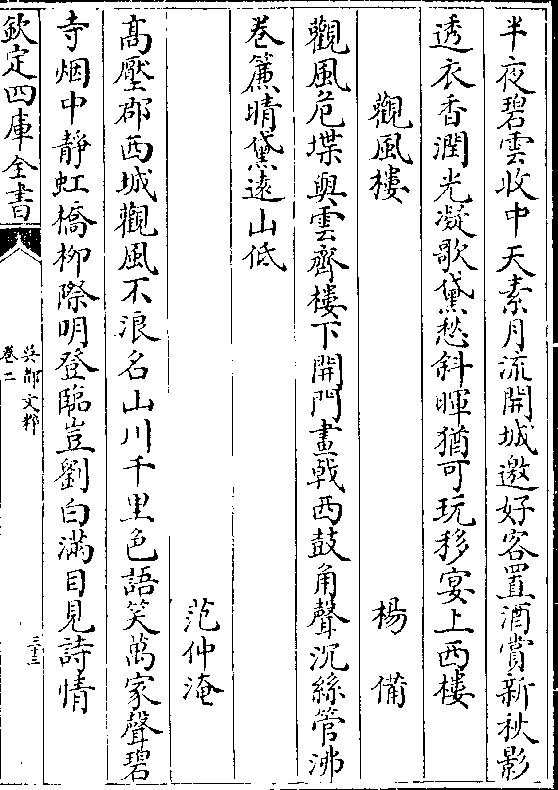 半夜碧雲收中天素月流開城邀好客置酒賞新秋影
透衣香潤光凝歌黛愁斜暉猶可玩移宴上西樓
觀風樓
楊備
觀風危堞與雲齊樓下開門畫㦸西鼓角聲沉絲管沸
卷簾晴黛遠山低
范仲淹
高壓郡西城觀風不浪名山川千里色語笑萬家聲碧
寺烟中靜虹橋柳際明登臨豈劉白滿目見詩情
欽定四庫全書
吳都文粹
卷二
三十三